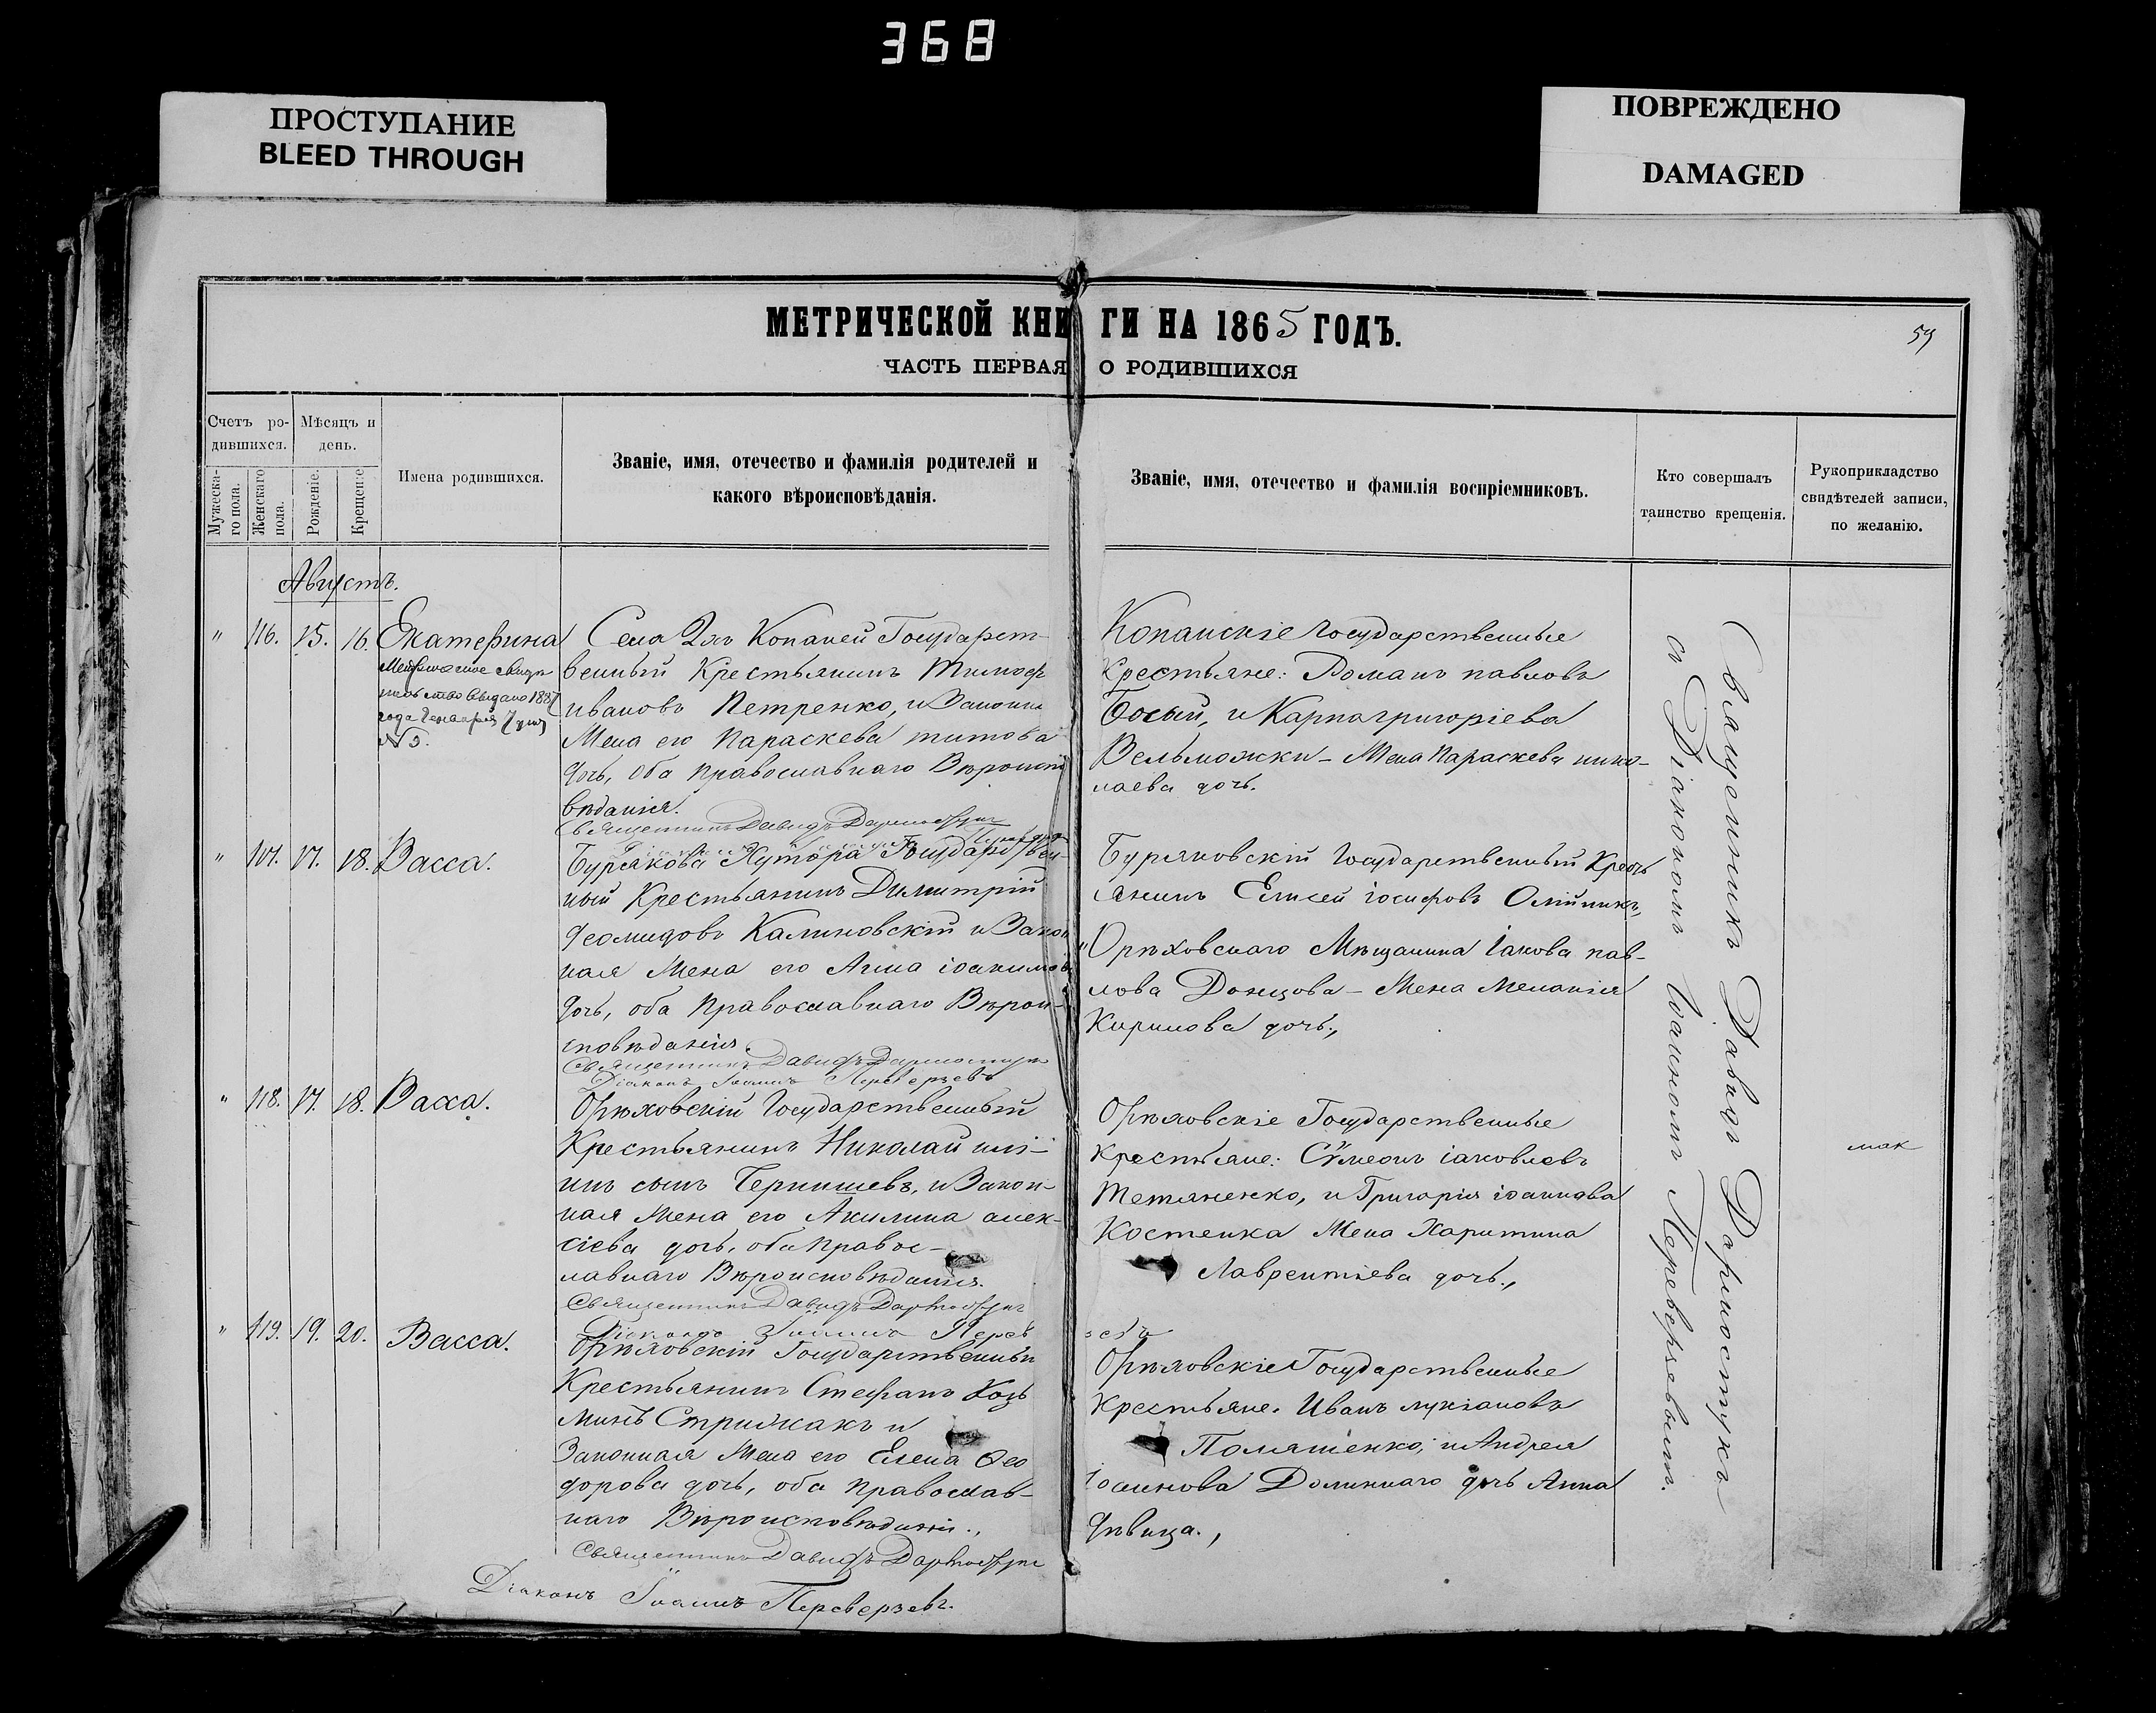 368
ПРОСТУПАНИЕ
BLEED THROUGH
ПОВРЕЖДЕНО
DAMAGED
МЕТРИЧЕСКОЙ КНИГИ НА 1865 ГОДЪ.
59
ЧАСТЬ ПЕРВАЯ О РОДИВШИХСЯ
Счетъ ро-
дившихся.
Мѣсяцъ и
день.
Мужеска-
го пола.
Женскаго
пола.
Рожденіе.
Крещеніе
Имена родившихся.
Званіе, имя, отечество и фамилія родителей и
какого вѣроисповѣданія.
Званіе, имя, отечество и фамилія воспріемниковъ.
Кто совершалъ
таинство крещенія.
Рукоприкладство
свидѣтелей записи,
по желанію.
Августъ.
" 116. 15. 16. Екатерина
выдано 1887
года Генваря 7 дня
№ 5.
Села Копаней Государст-
венный Крестьянинъ Тимоф
ивановъ Петренко, и Законн
Жена его Параскева титова
дочь, оба православнаго Вѣроиспо
вѣданія.
Священникъ Давидъ Дармостукъ
Копанскіе государственные
Крестьяне: Романъ павловъ
Босый, и Карпа григоріева
Вельможки - Жена Параскева нико-
лаева дочь.
" 17. 18. Васса.
Бурякова Хутора Государствен-
ный Крестьянинъ Димитрій
Калиновскій и Закон
ная Жена его Анна іоакимов
дочь, оба Православнаго Вѣрои-
сповѣданія.
Священникъ Давидъ Дармостукъ
Діаконъ Іоаннъ Переверзевъ
Буряковскій Государственный Кресть
янинъ Елисей іосифовъ Олійникъ,
Орѣховскаго Мѣщанина Іакова пав-
лова Донцова - Жена Меланія
Кирилова дочь.,
" 118. 17. 18. Васса.
Орѣховскій Государственный
Крестьянинъ Николай илі-
инъ сынъ Чернишевъ, и Закон-
ная Жена его Акилина алек-
сіева дочь, оба Правос-
лавнаго Вѣроисповѣданія.
Священникъ Давидъ Дармостукъ
Діаконъ Іоаннъ Перев
зевъ
Орѣховскіе Государственные
Крестьяне: Сѵмеонъ іаковлевъ
Тетяненко, и Григорія іоаннова
Костенка Жена Харитина
Лаврентіева дочь.,
мак
" 119. 19. 20. Васса.
Орѣховскій Государственный
Крестьянинъ Стефанъ Козь
минъ Стрижакъ и
Законная Жена его Елена Ѳео
дорова дочь, оба православ-
наго Вѣроисповѣданія.,
Священникъ Давидъ Дармостукъ
Діаконъ Іоаннъ Переверзевъ.
Орѣховскіе Государственные
Крестьяне: Иванъ лукіановъ
и Андрея
Іоаннова дочь Анна
Дѣвица.,
Священникъ Давидъ Дармостукъ
съ Діакономъ Іоанномъ Переверзевымъ.